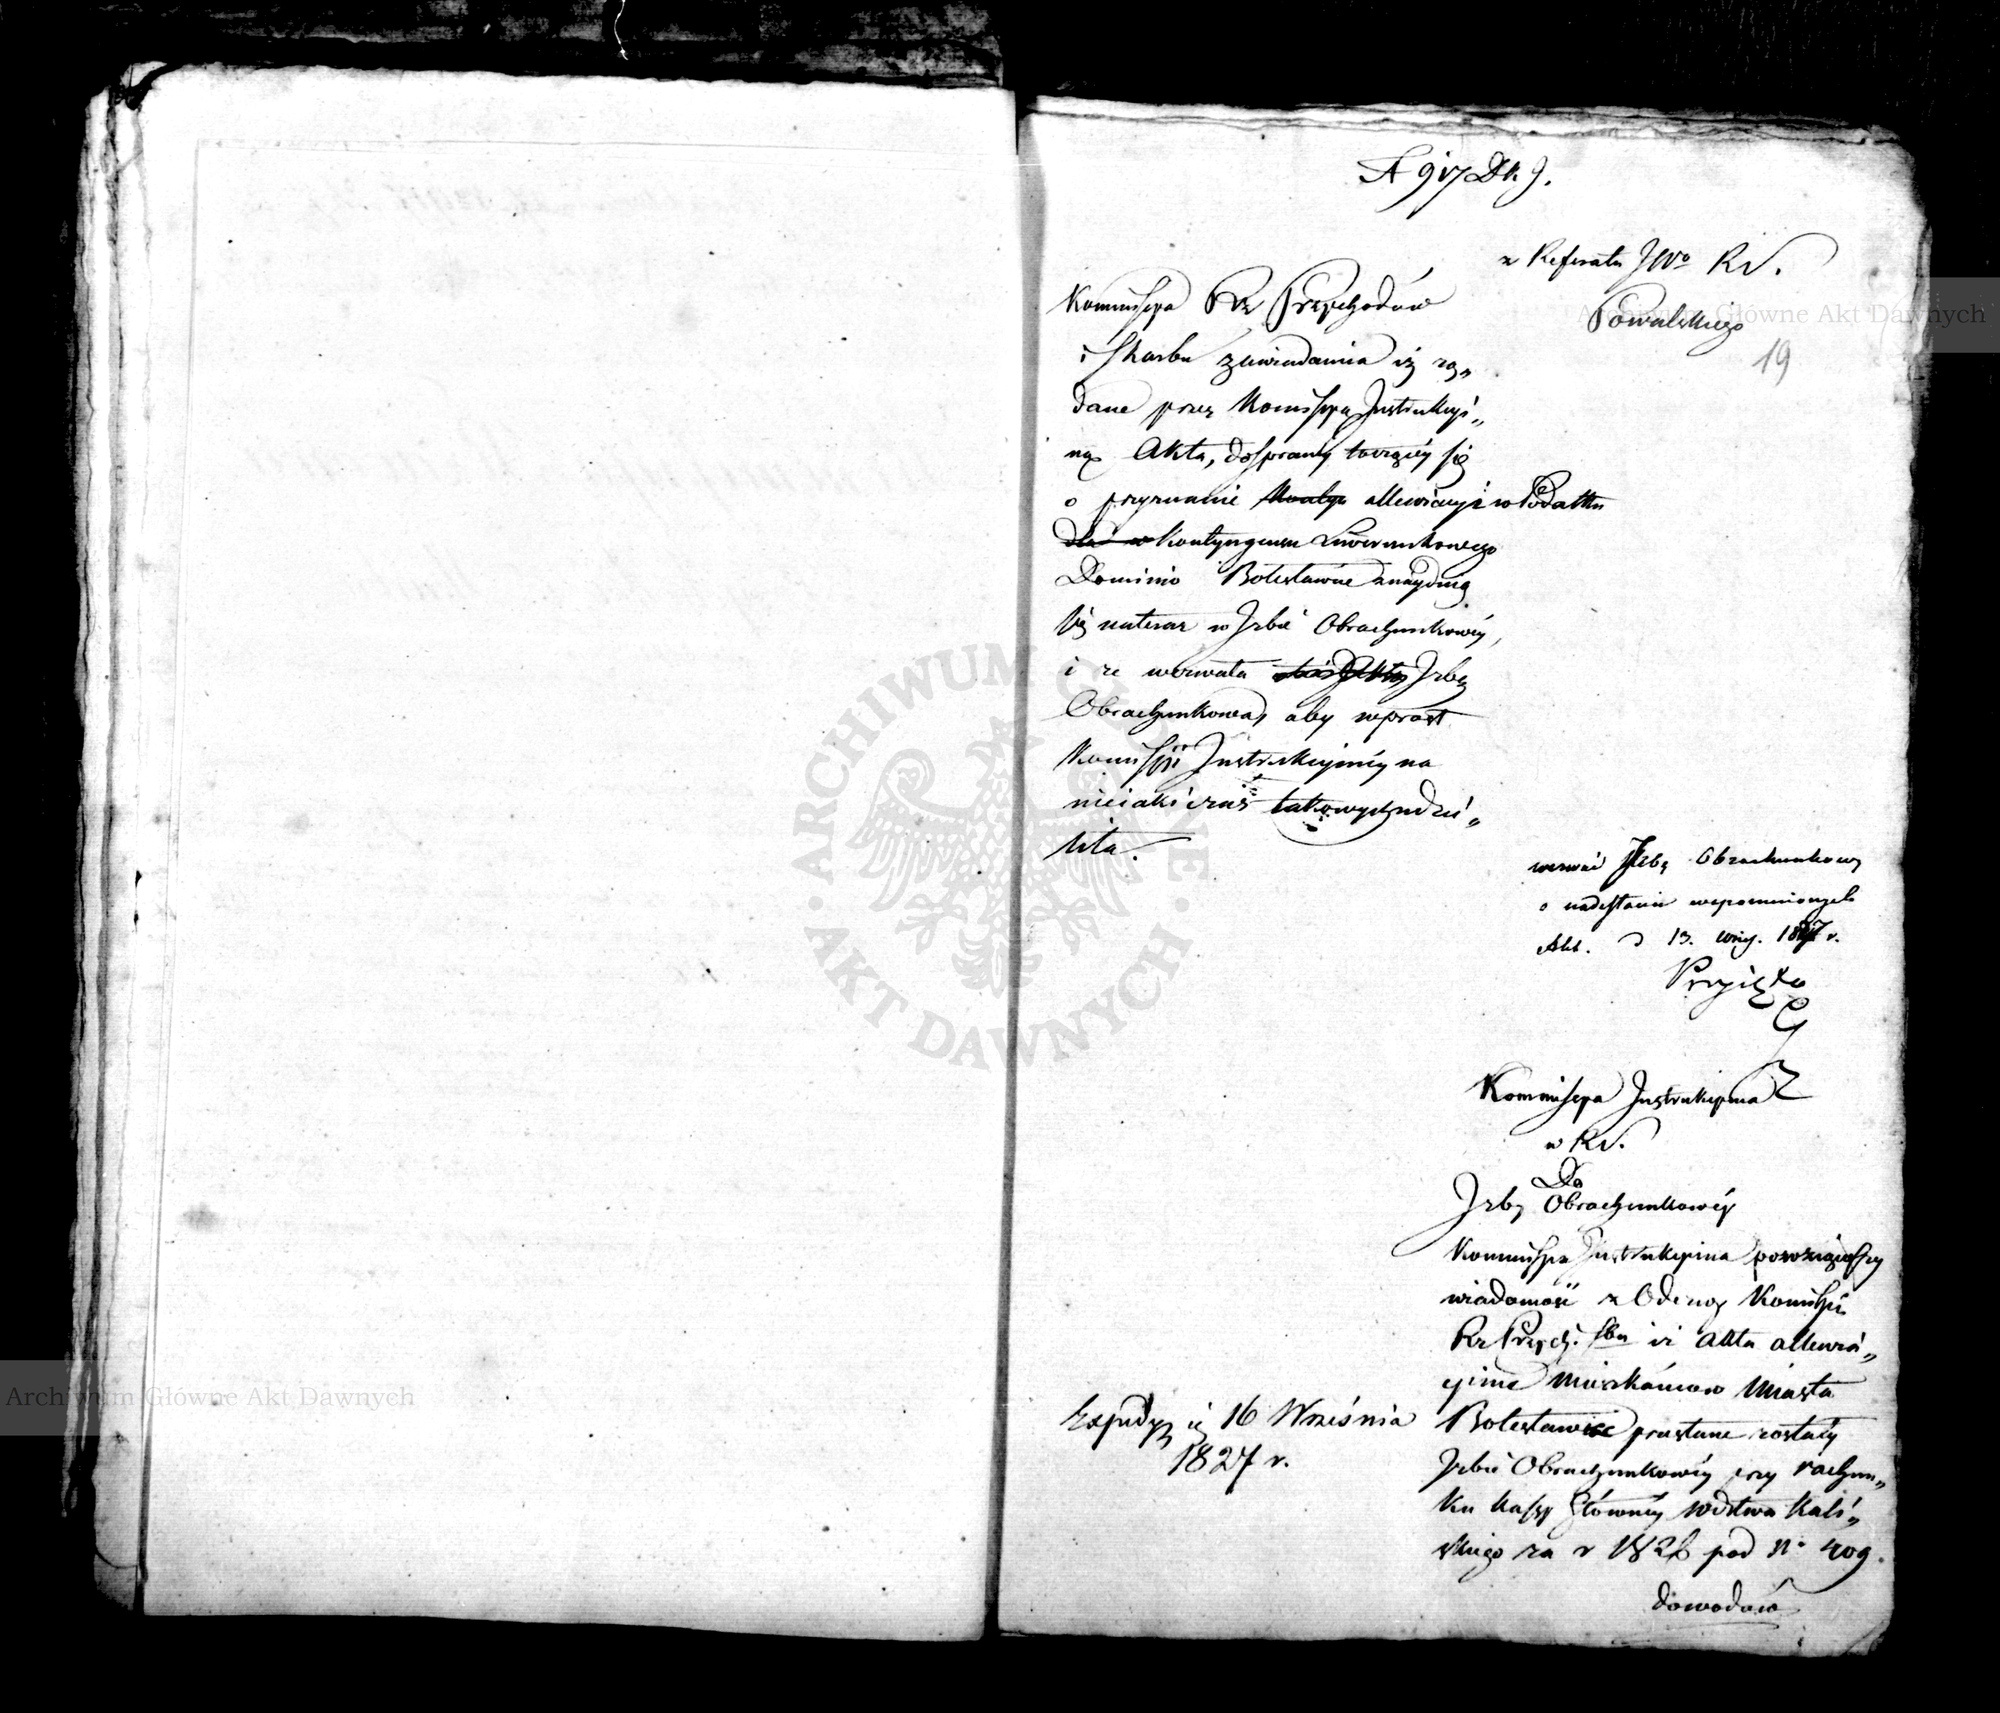 N 917 Dk. J.
z Referatu JWo RS.
Powalskiego
19
Kommissya Rz Przychodów
i Skarbu zawiadamia iż rzą„
dane przez Komissyą Instrukcyi„
ną Akta, do sprawy toczącey się
o przyznanie allewiacyi w Podatku
Kontyngensu Liwerunkowego
Dominio Bolesławiec znayduią
się na teraz w Izbie Obrachunkowéy,
i że wezwała Izbę
Obrachunkową, aby wprost
Komissyi Instrukcyinéy na
nieiaki czas takowych udzie„
liła.
wezwać Izbę Obrachunkową
o nadesłanie wspomnionych
Akt. d 13. Wrz. 1827 r.
Komissya Instrukcyina
w RS.
Do
Izby Obrachunkowéy
Kommissya Instrukcyina powziąwszy
wiadomość z Odezwy Komissyi
Rz Przych. Sbu iż akta allewia„
cyine Mieszkańców Miasta
Bolesławiec przesłane zostały
Izbie Obrachunkowéy przy rachun„
ku kassy Głównéy Wdztwa Kali„
skiego za r 1826 pod No 409.
dowodów
Expedyu ię 16 Września
1827 r.
ARCHIWUM GŁÓWNE AKT DAWNYCH
Archiwum Główne Akt Dawnych
Archiwum Główne Akt Dawnych